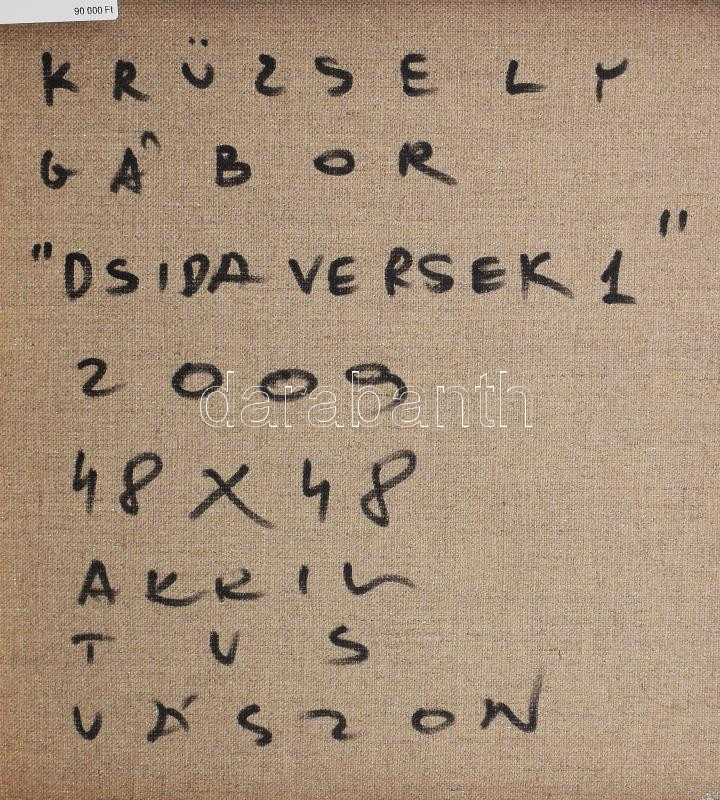 90 000 Ft
KRÜZSELY
GÁBOR
"DSIDA VERSEK 1"
2009
48 X 48
AKRIL
TUS
VÁSZON
darabanth